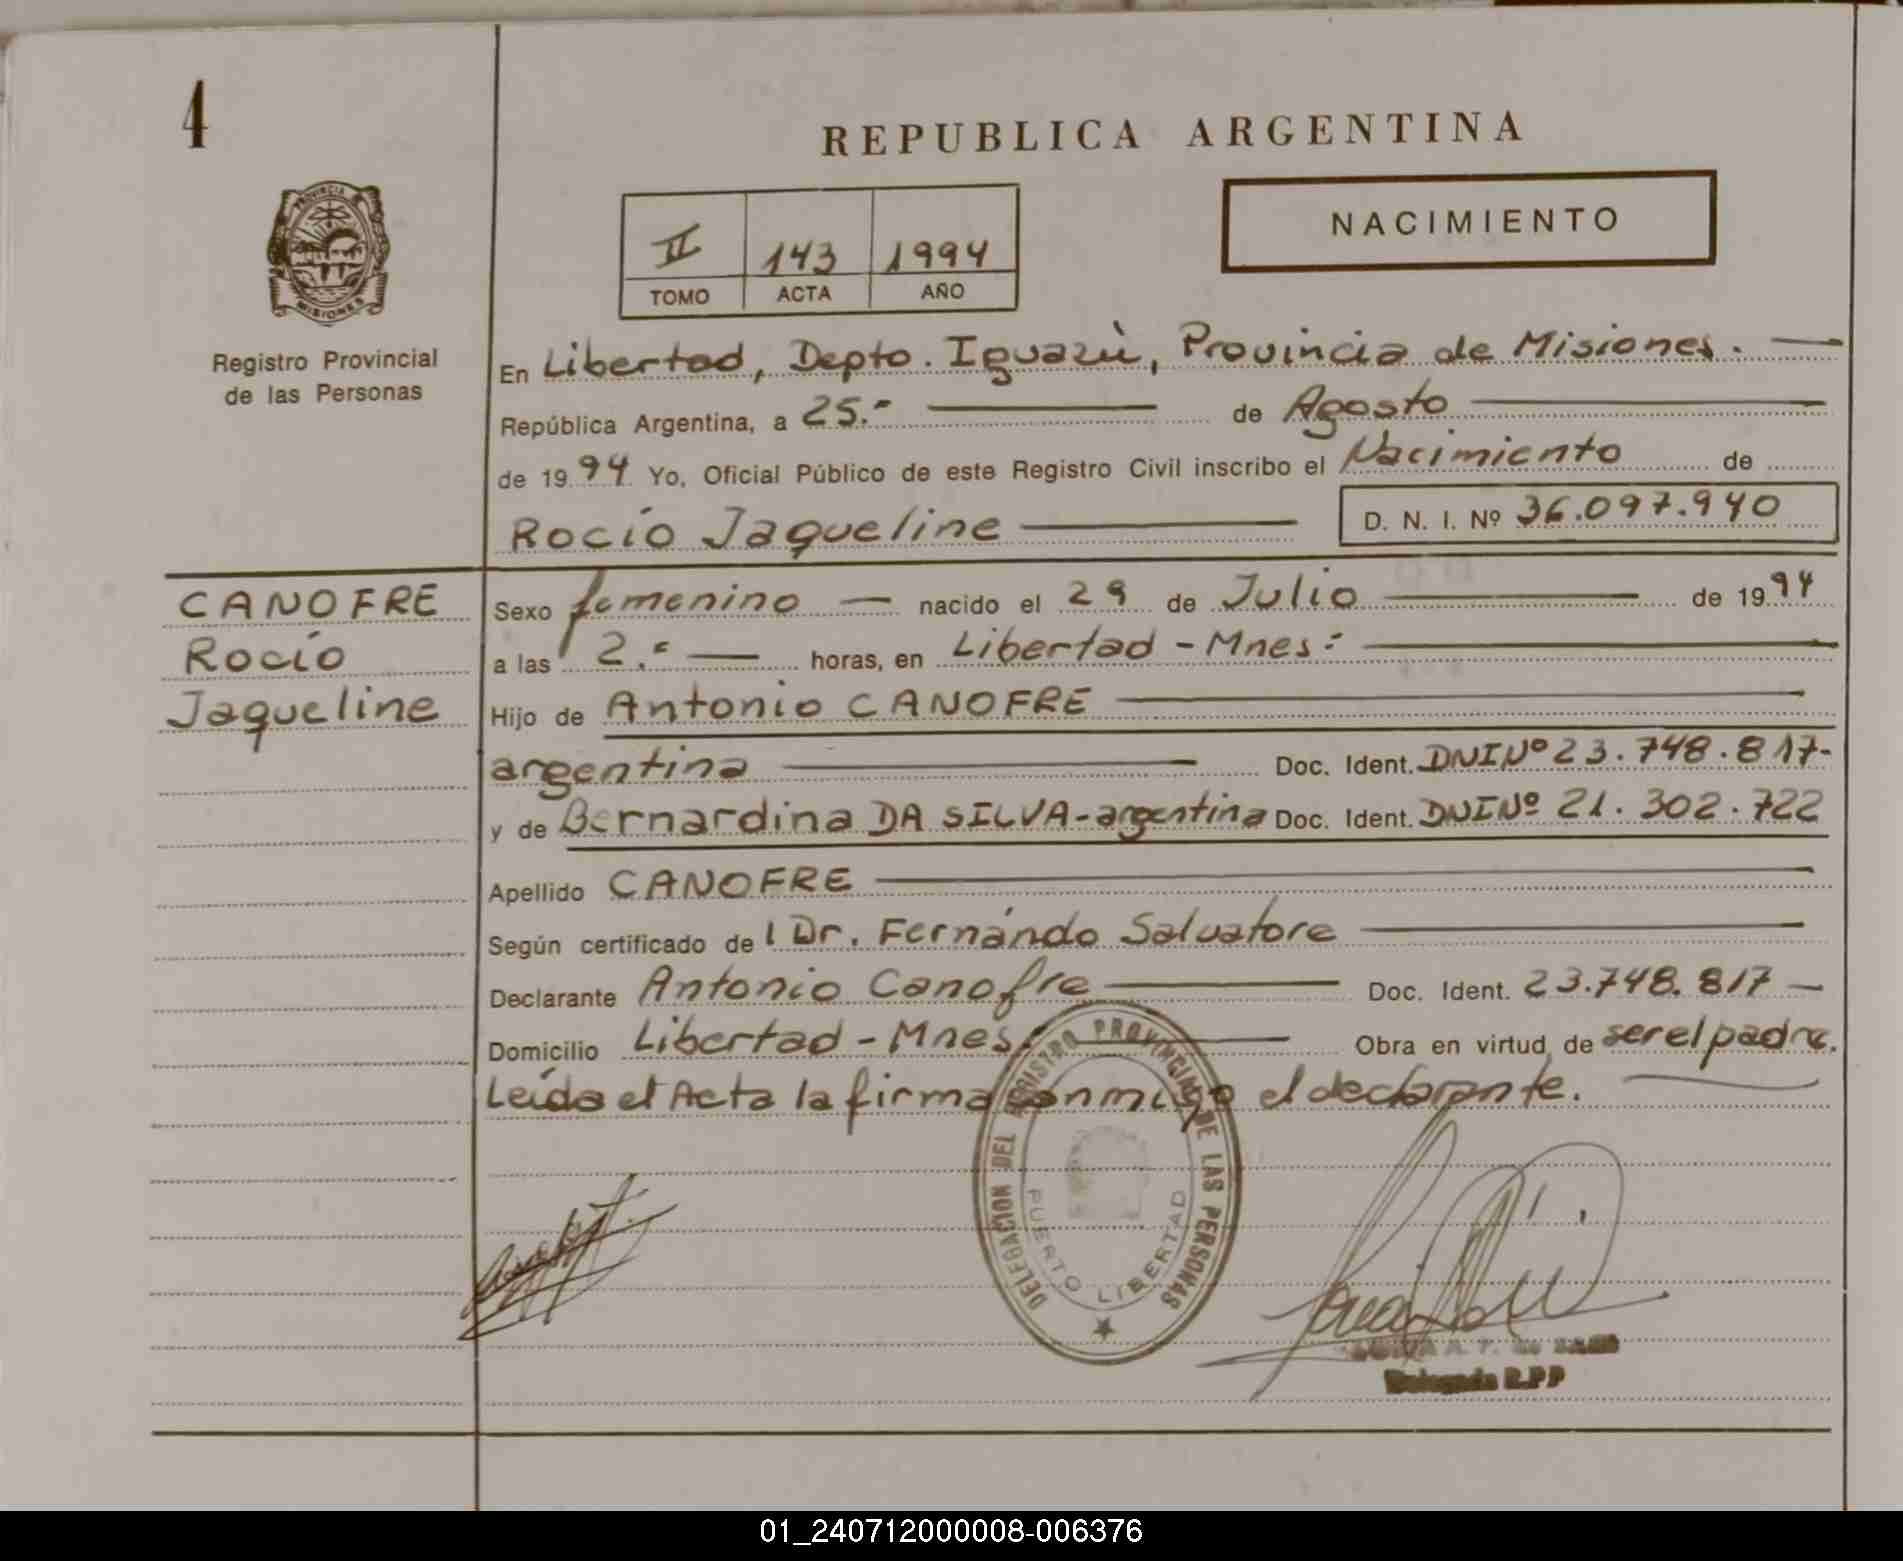 4
REPUBLICA ARGENTINA
PROVINCIA
MISIONES
Registro Provincial
de las Personas
II 143 1994
TOMO ACTA AÑO
NACIMIENTO
En Libertad, Depto. Iguazù, Provincia de Misiones.
República Argentina, a 25.- de Agosto
de 1994 Yo, Oficial Público de este Registro Civil inscribo el Nacimiento de
Rocío Jaqueline D. N. I. Nº 36.097.940
CANOFRE
Rocío
Jaqueline
Sexo femenino nacido el 29 de Julio de 1994
a las 2.- horas, en Libertad - Mnes:
Hijo de Antonio CANOFRE
argentina Doc. Ident. DNI Nº 23.748.817-
y de Bernardina DA SILVA - argentina Doc. Ident. DNI Nº 21.302.722
Apellido CANOFRE
Según certificado de l Dr. Fernándo Salvatore
Declarante Antonio Canofre Doc. Ident. 23.748.817
Domicilio Libertad - Mnes. Obra en virtud de ser el padre.
Leída el Acta la firma conmigo el declarante.
DELEGACION DEL REGISTRO PROVINCIAL DE LAS PERSONAS
PUERTO LIBERTAD
Delegada R.P.P
01_240712000008-006376